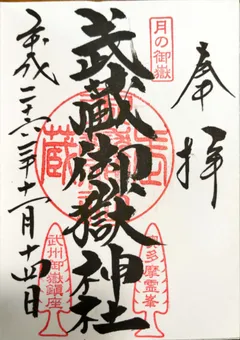 奉拝
月の御嶽
武蔵御嶽神社
多摩霊峯
武州御嶽鎮座
平成二十六年十一月十四日